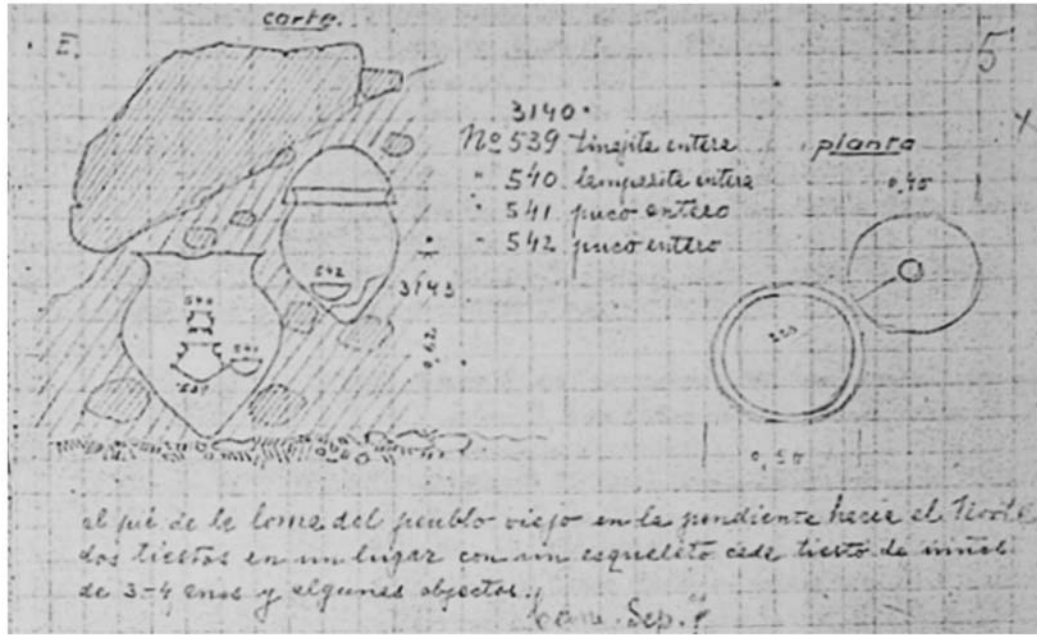 corte.
II.
5
3140.
Nº 539 tinajita entera
" 540 lamparita entera
" 541 puco entero
" 542 puco entero
planta
0,45
542
3143
540
541
539
0,62
0,50
al pié de la loma del pueblo viejo en la pendiente hacia el Norte
dos tiestos en un lugar con un esqueleto cada tiesto de
de 3-4 anos y algunos objectos.
Sep.